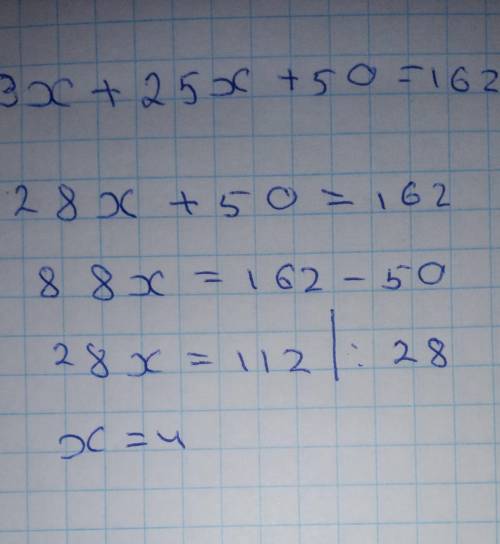 3x + 25x + 50 = 162
28x + 50 = 162
88x = 162 - 50
28x = 112 | : 28
x = 4